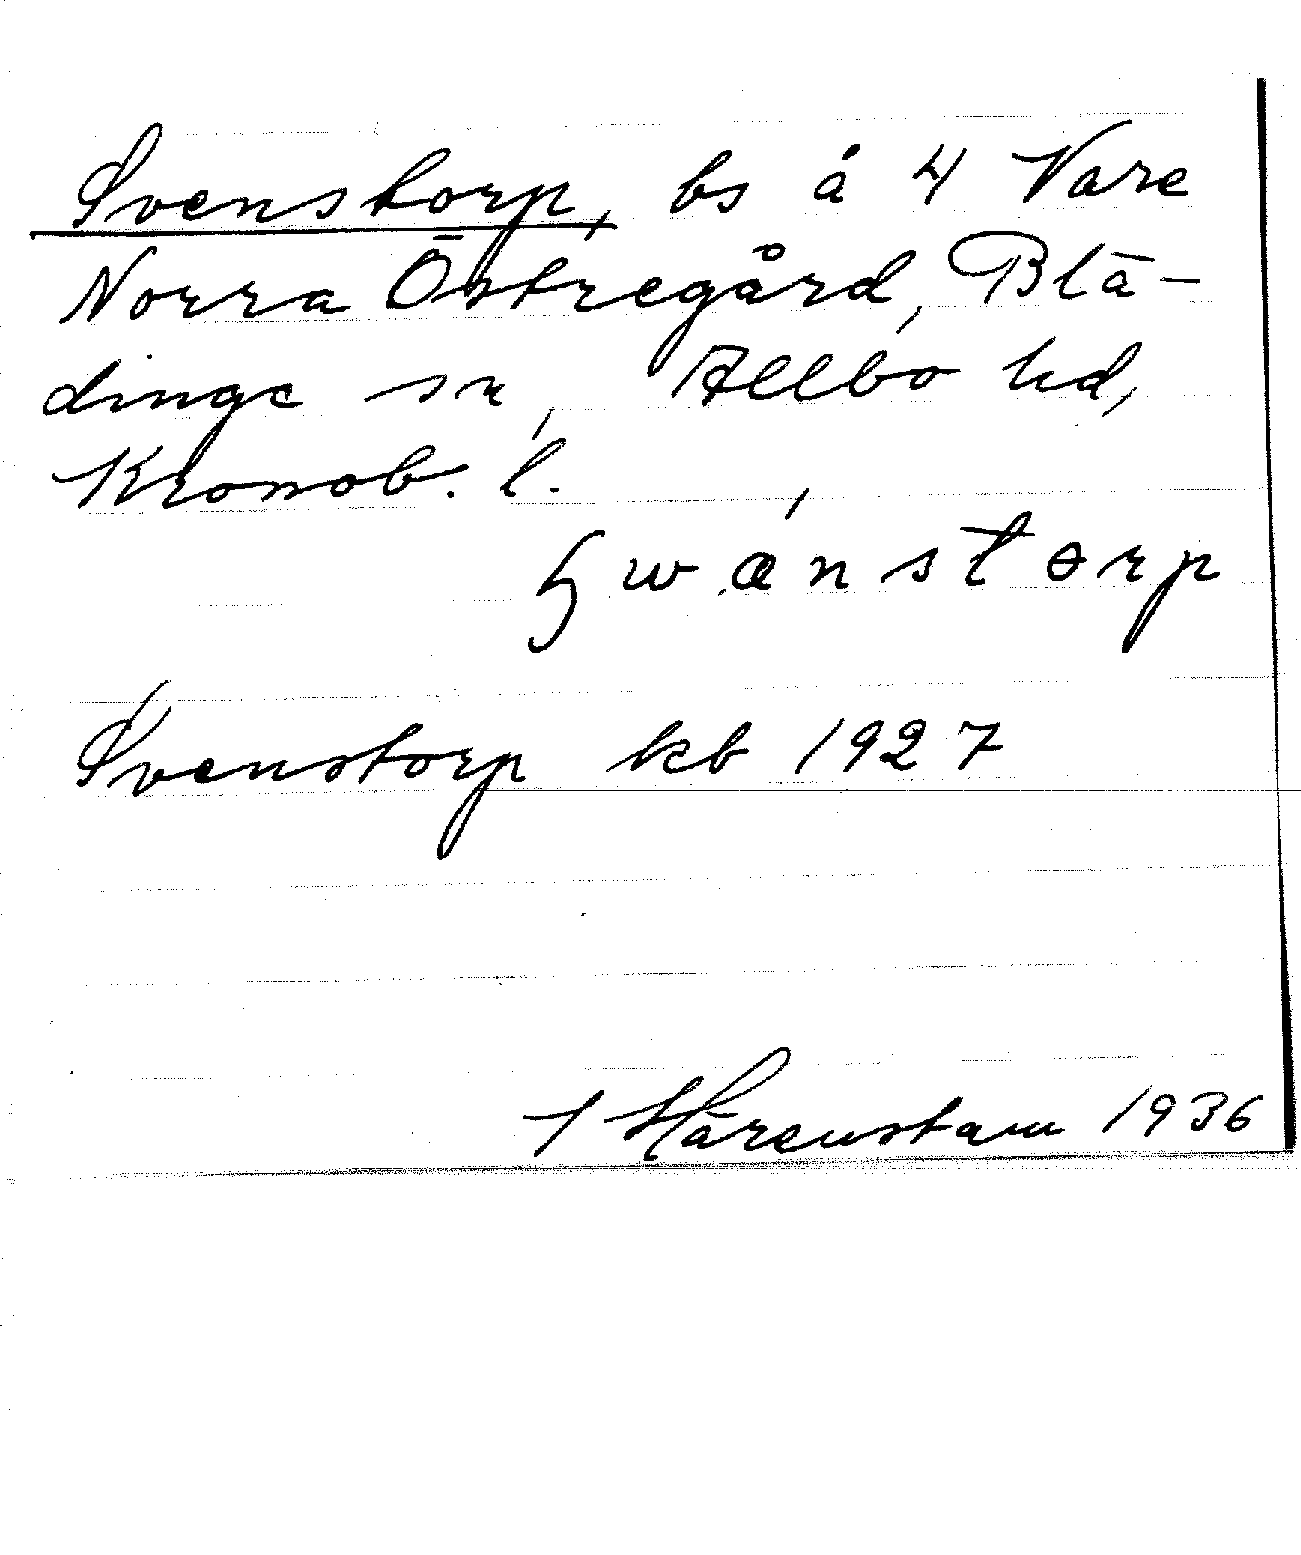 Svenstorp, bs å 4 Vare
Norra Östregård, Blä-
dinge sn, Allbo hd,
Kronob. l.
swænstorp
Svenstorp kb 1927
J Härenstam 1936